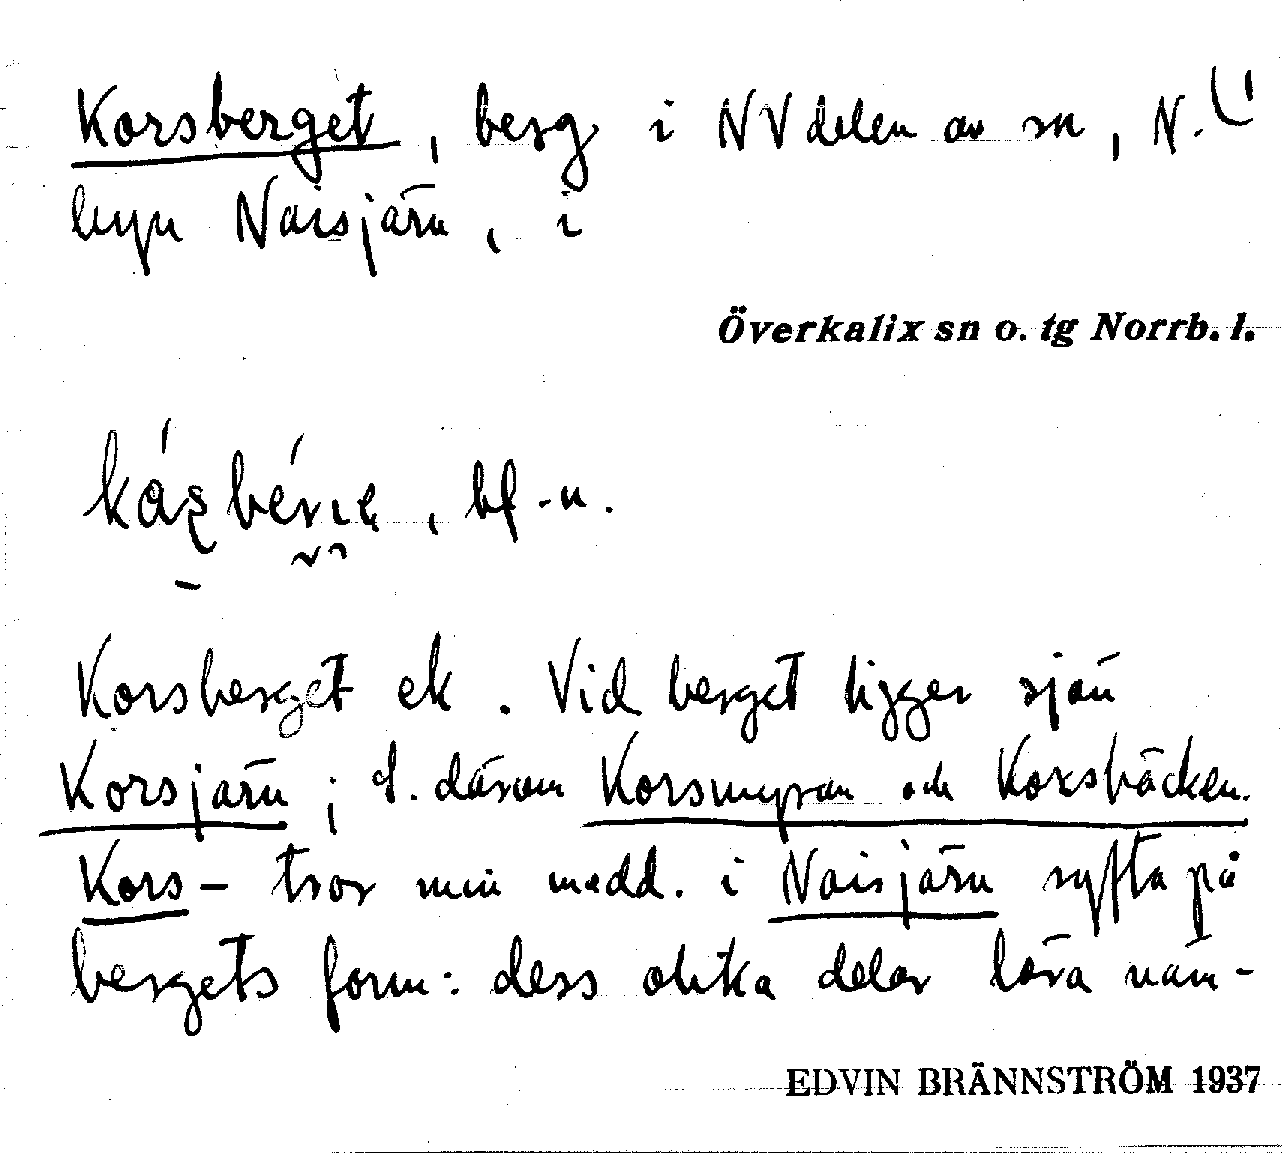 Korsberget, berg i NV delen av sn, N.
byn Naisjärv, i
Överkalix sn o. tg Norrb. l.
bf -n.
Korsberget ek. Vid berget ligger sjön
Korsjärv; S. därom Korsmyran och Korsbäcken.
Kors- tror min medd. i Naisjärv syfta på
bergets form: dess olika delar lära näm-
EDVIN BRÄNNSTRÖM 1937